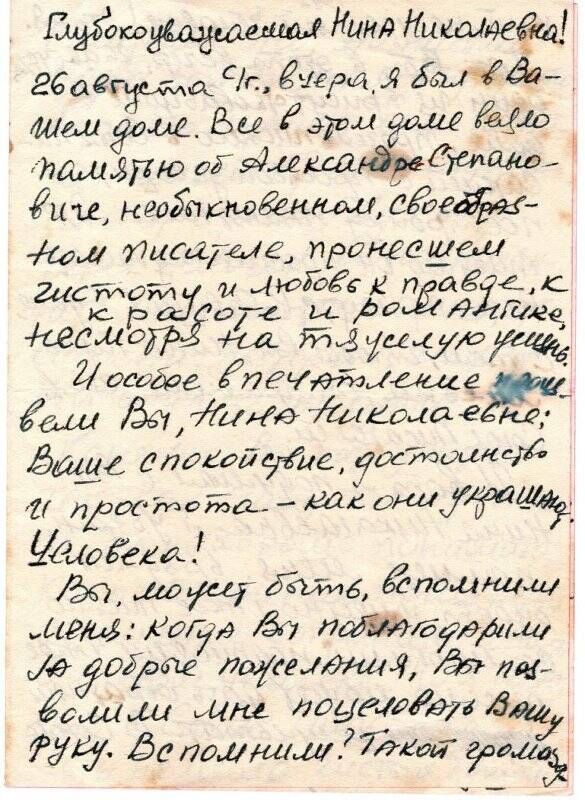 Глубокоуважаемая Нина Николаевна!
26 августа с/г., вчера, я был в Ва-
шем доме. Все в этом доме веяло
памятью об Александре Степано-
виче, необыкновенном, своеобраз-
ном писателе, пронесшем
чистоту и любовь к правде, к
красоте и романтике,
несмотря на тяжелую жизнь.
И особое впечатление произ-
вели Вы, Нина Николаевне;
Ваше спокойствие, достоинство
и простота – как они украшают
Человека!
Вы, может быть, вспомнили
меня: когда Вы поблагодарили
за добрые пожелания, Вы поз-
волили мне поцеловать Вашу
руку. Вспомнили? Такой